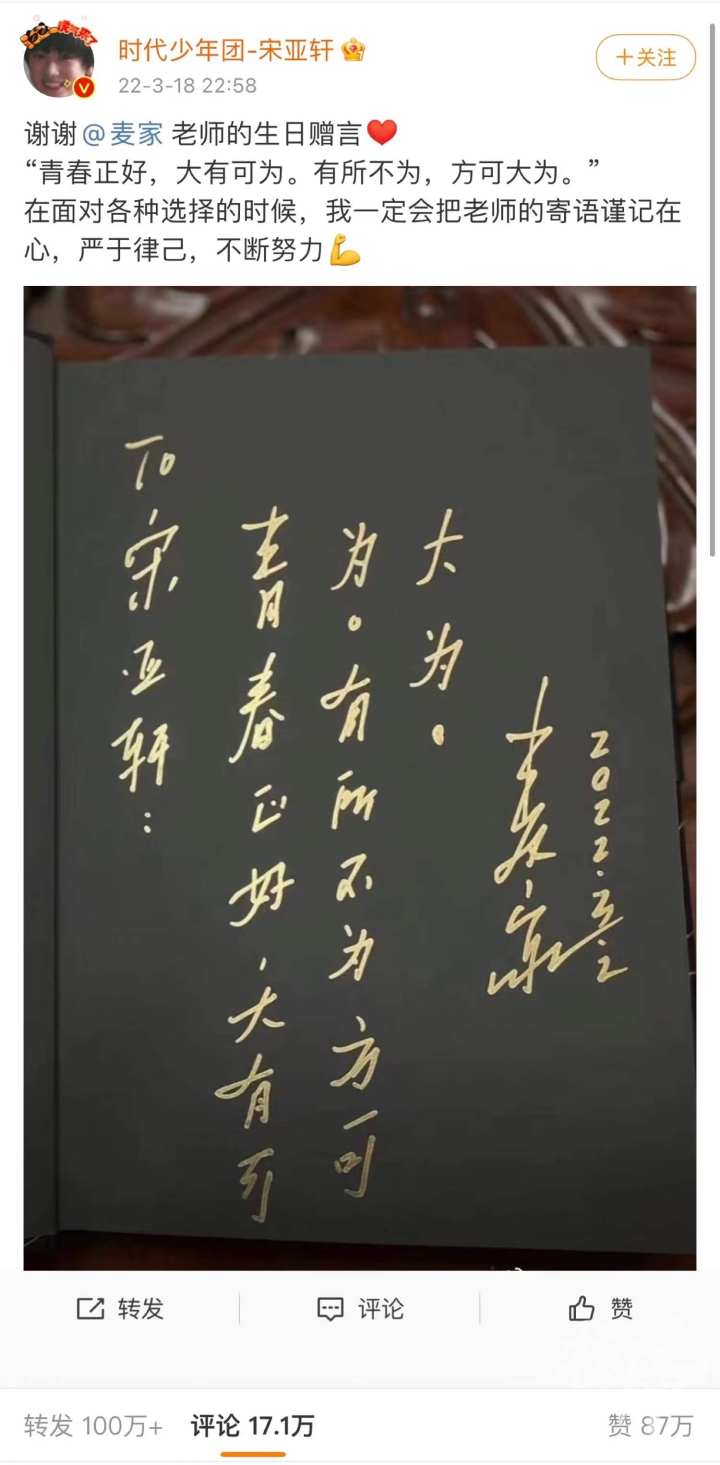 时代少年团-宋亚轩
22-3-18 22:58
+关注
谢谢@麦家 老师的生日赠言❤️
“青春正好，大有可为。有所不为，方可大为。”
在面对各种选择的时候，我一定会把老师的寄语谨记在
心，严于律己，不断努力💪
To
宋亚轩：
青春正好，大有可
为。有所不为方可
大为。
麦家
2022.3.2
转发
评论
赞
转发 100万+
评论 17.1万
赞 87万